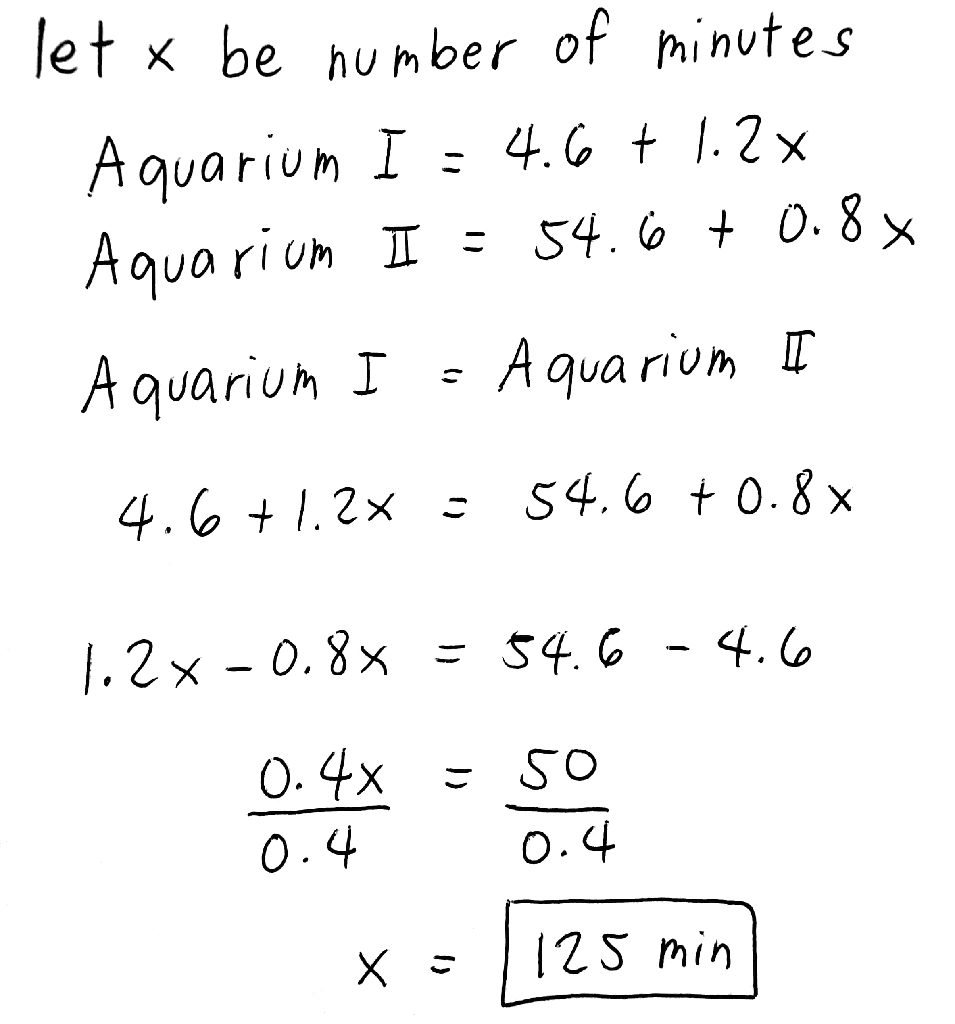 let x be number of minutes
Aquarium I = 4.6 + 1.2x
Aquarium II = 54.6 + 0.8x
Aquarium I = Aquarium II
4.6 + 1.2x = 54.6 + 0.8x
1.2x - 0.8x = 54.6 - 4.6
0.4x = 50
0.4 0.4
x = 125 min